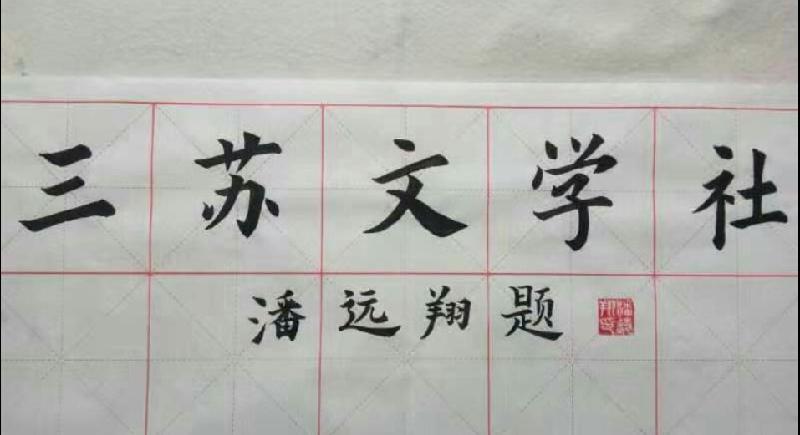 三苏文学社
潘远翔题